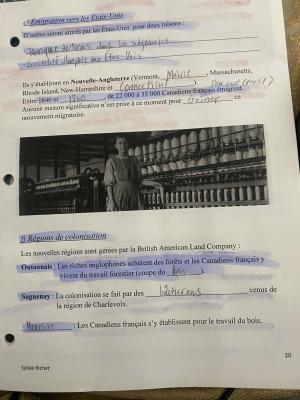 c) Émigration vers les États-Unis
D'autres seront attirés par les États-Unis pour deux raisons :
- manque de terres dans les seigneuries
- possibilité d'emplois aux États-Unis
Ils s'établiront en Nouvelle-Angleterre (Vermont, Maine, Massachusetts,
Rhode Island, New-Hampshire et Connecticut).
Entre 1840 et 1860, de 22 000 à 35 000 Canadiens français émigrent.
Aucune mesure significative n'est prise à ce moment pour freiner ce
mouvement migratoire.
Régions de colonisation
Les nouvelles régions sont gérées par la British American Land Company :
Outaouais : Les riches anglophones achètent des forêts et les Canadiens français y
vivent du travail forestier (coupe du bois).
Saguenay : La colonisation se fait par des bûcherons venus de
la région de Charlevoix.
Mauricie : Les Canadiens français s'y établissent pour le travail du bois.
20
Sylvie Richer